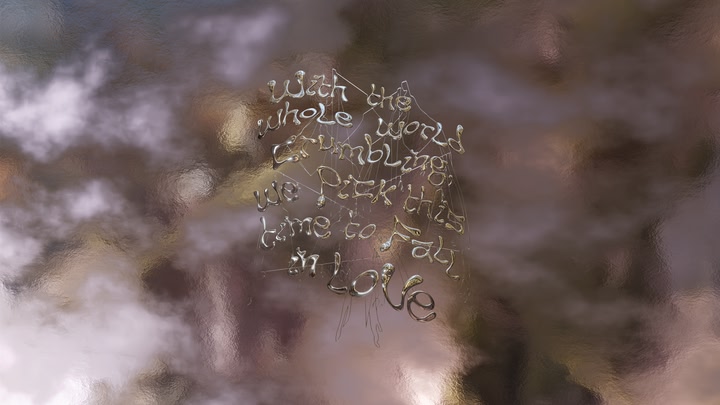 With the
whole world
crumbling,
we PICK this
time to Fall
in LOVE